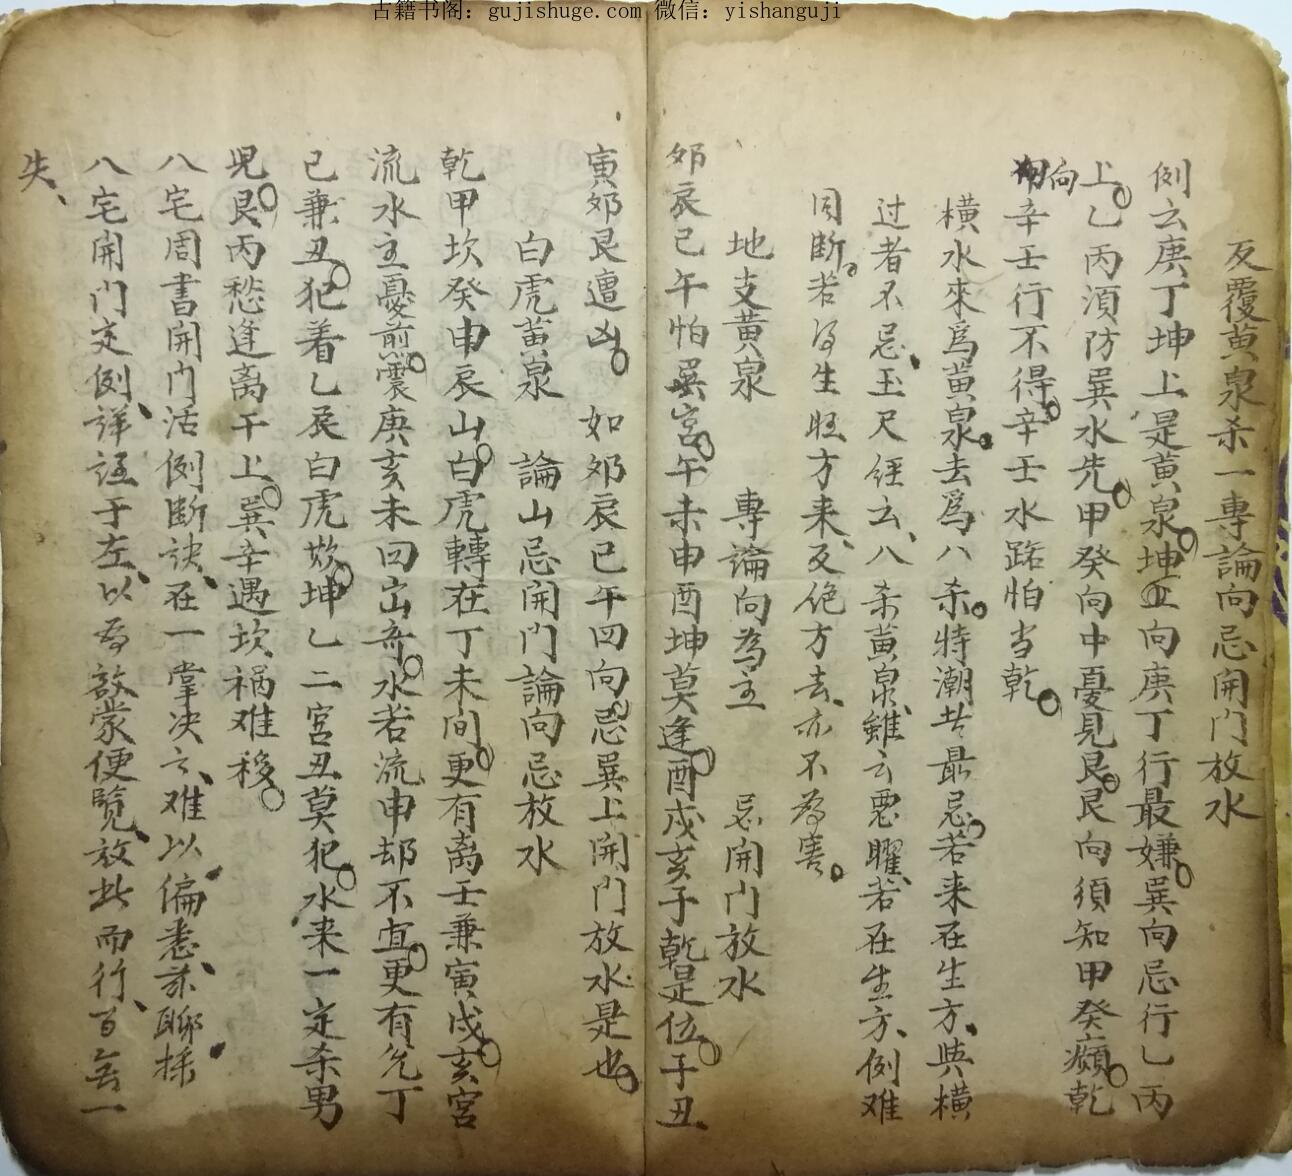 古籍书阁：gujishuge.com 微信：yishanguji
反覆黄泉杀一專論向忌開門放水
例云庚丁坤上是黄泉坤正向庚丁行最嫌巽向忌行乙丙
上乙丙須防巽水先甲癸向中憂見艮艮向須知甲癸癲乾
向辛壬行不得辛壬水路怕当乾
橫水來爲黄泉去爲八杀特潮者最忌若来在生方與橫
过者不忌玉尺經云八杀黄泉雖云惡曜若在生方例难
同断若得生旺方来反绝方去亦不為害
地支黄泉 專論向為主 忌開门放水
卯辰巳午怕巽宫午未申酉坤莫逢酉戌亥子乾是位子丑
寅卯艮遭凶 如卯辰巳午四向忌巽上開门放水是也
白虎黄泉 論山忌開门論向忌放水
乾甲坎癸申辰山白虎轉在丁未间更有离壬兼寅戌亥宫
流水主憂煎震庚亥未四山奇水若流申却不宜更有兑丁
巳兼丑犯着乙辰白虎欺坤乙二宫丑莫犯水来一定杀男
児艮丙愁逢离干上巽辛遇坎祸难移
八宅周書開门活例断訣在一掌决云难以偏悉茲聊採
八宅開门定例詳註于左以為啟蒙便覽放此而行百無一
失